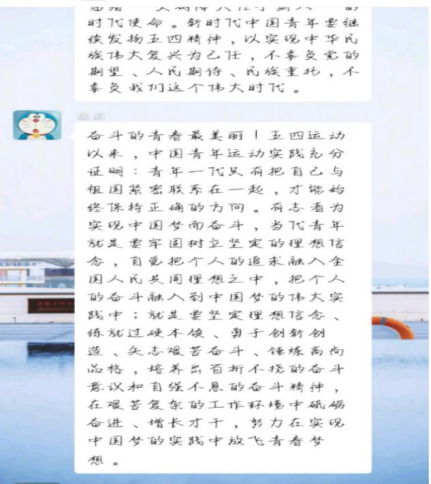 时代使命。新时代中国青年要继
续发扬五四精神，以实现中华民
族伟大复兴为己任，不辜负党的
期望、人民期待、民族重托，不
辜负我们这个伟大时代。
奋斗的青春最美丽！五四运动
以来，中国青年运动实践充分
证明：青年一代只有把自己与
祖国紧密联系在一起，才能始
终保持正确的方向。有志者为
实现中国梦而奋斗，当代青年
就是要牢固树立坚定的理想信
念，自觉把个人的追求融入全
国人民共同理想之中，把个人
的奋斗融入到中国梦的伟大实
践中；就是要坚定理想信念、
练就过硬本领、勇于创新创
造、矢志艰苦奋斗、锤炼高尚
品格，培养出百折不挠的奋斗
意识和自强不息的奋斗精神，
在艰苦复杂的工作环境中砥砺
奋进、增长才干，努力在实现
中国梦的实践中放飞青春梦
想。